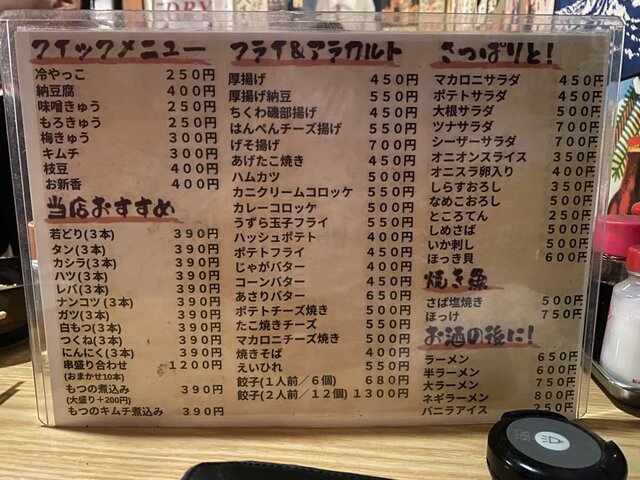 クイックメニュー
冷やっこ 250円
納豆腐 400円
味噌きゅう 250円
もろきゅう 250円
梅きゅう 300円
キムチ 300円
枝豆 400円
お新香 400円
当店おすすめ
若どり(3本) 390円
タン(3本) 390円
カシラ(3本) 390円
ハツ(3本) 390円
レバ(3本) 390円
ナンコツ(3本) 390円
ガツ(3本) 390円
白もつ(3本) 390円
つくね(3本) 390円
にんにく(3本) 390円
串盛り合わせ 1200円
(おまかせ10本)
もつの煮込み 390円
(大盛り+200円)
もつのキムチ煮込み 390円
フライ&アラカルト
厚揚げ 450円
厚揚げ納豆 550円
ちくわ磯部揚げ 450円
はんぺんチーズ揚げ 550円
げそ揚げ 700円
あげたこ焼き 450円
ハムカツ 500円
カニクリームコロッケ 550円
カレーコロッケ 500円
うずら玉子フライ 550円
ハッシュポテト 400円
ポテトフライ 450円
じゃがバター 400円
コーンバター 450円
あさりバター 650円
ポテトチーズ焼き 500円
たこ焼きチーズ 550円
マカロニチーズ焼き 500円
焼きそば 400円
えいひれ 550円
餃子(1人前/6個) 680円
餃子(2人前/12個) 1300円
さっぱりと!
マカロニサラダ 450円
ポテトサラダ 450円
大根サラダ 500円
ツナサラダ 700円
シーザーサラダ 700円
オニオンスライス 350円
オニスラ卵入り 400円
しらすおろし 350円
なめこおろし 500円
ところてん 250円
しめさば 500円
いか刺し 500円
ほっき貝 600円
焼き魚
さば塩焼き 500円
ほっけ 750円
お酒の後に!
ラーメン 650円
半ラーメン 600円
大ラーメン 750円
ネギラーメン 800円
バニラアイス 250円